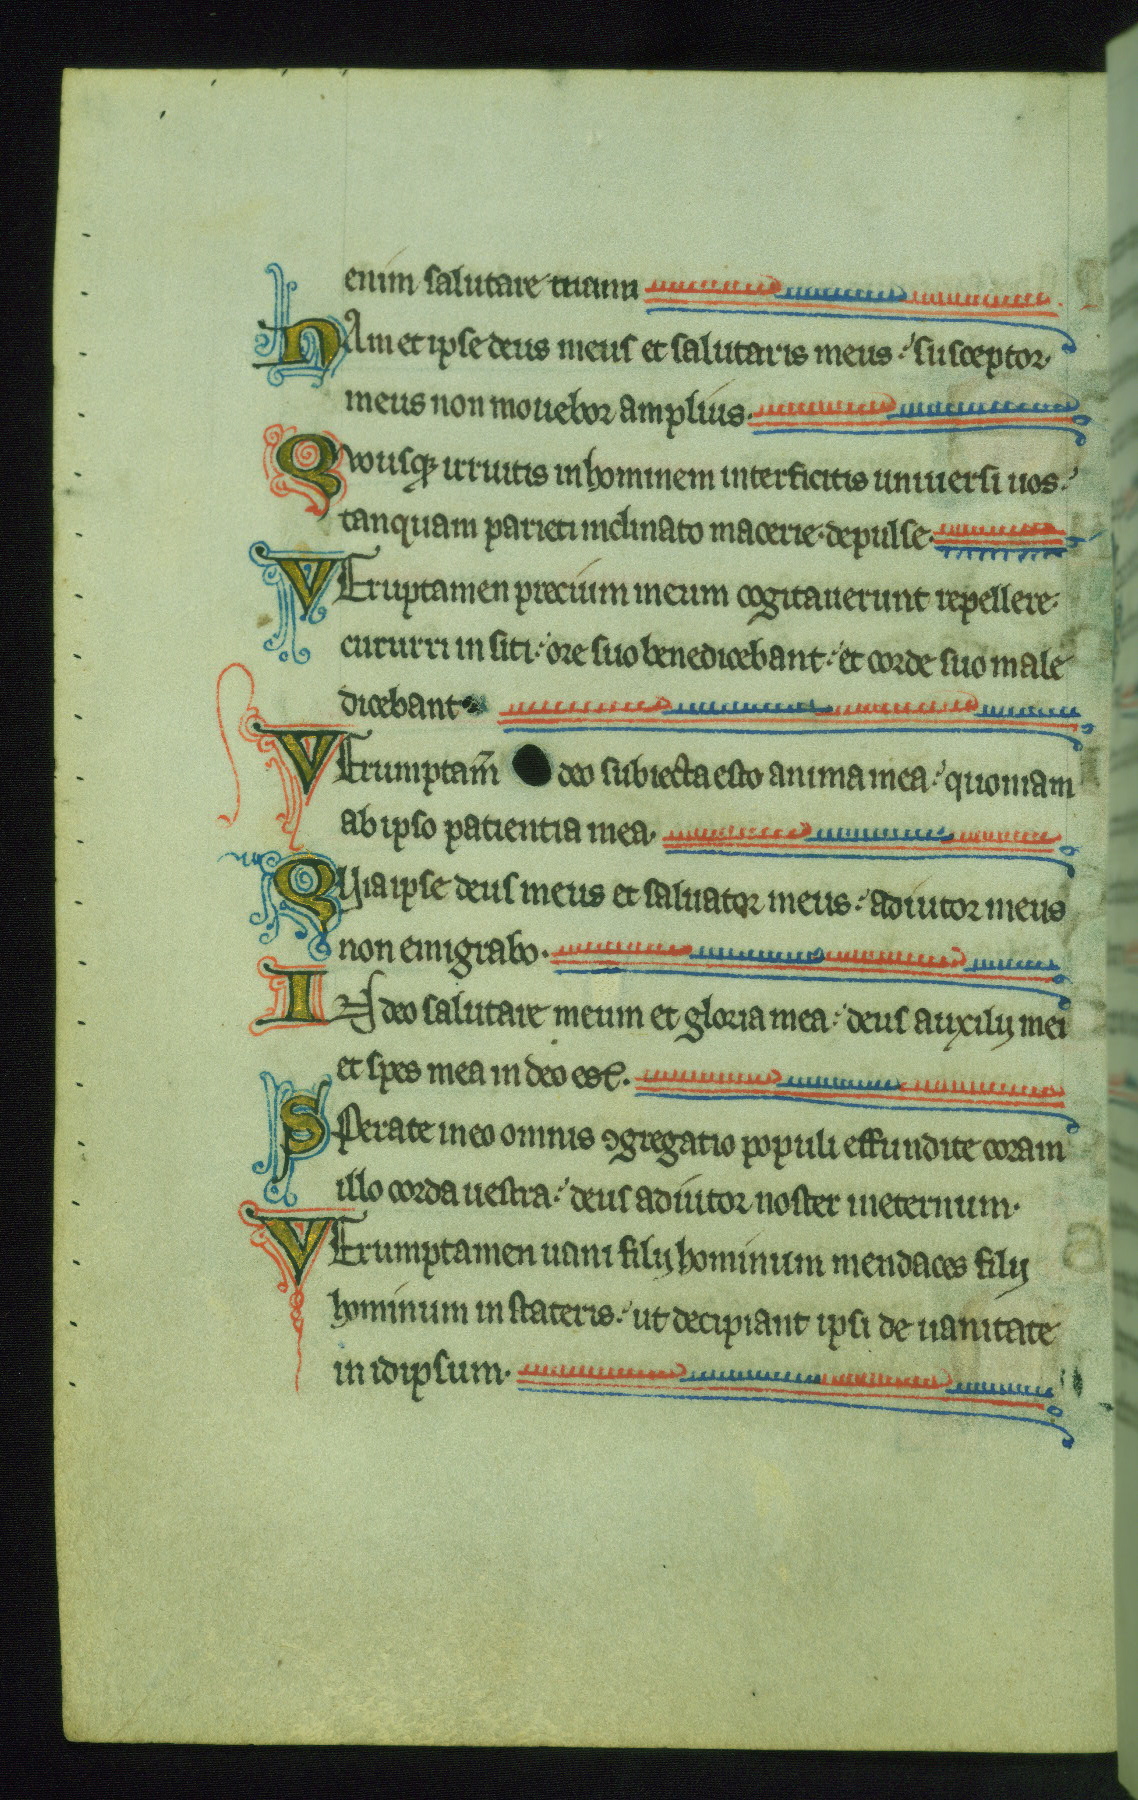 enim salutare tuum
NAm et ipse deus meus et salutaris meus susceptor
meus non mouebor amplius.
Qvousq; irruitis in hominem interficitis uniuersi uos
tanquam parieti inclinato macerie depulse.
VEruptamen precium meum cogitauerunt repellere
cucurri in siti ore suo benedicebant et corde suo male
dicebant
VErumptam̃ deo subiecta esto anima mea quoniam
ab ipso patientia mea.
QUia ipse deus meus et saluator meus adiutor meus
non emigrabo.
IN deo salutare meum et gloria mea deus auxilij mei
et spes mea in deo est.
SPerate in eo omnis ꝯgregatio populi effundite coram
illo corda uestra deus adiutor noster ineternum.
VErumptamen uani filij hominum mendaces filij
hominum in stateris ut decipiant ipsi de uanitate
in idipsum.